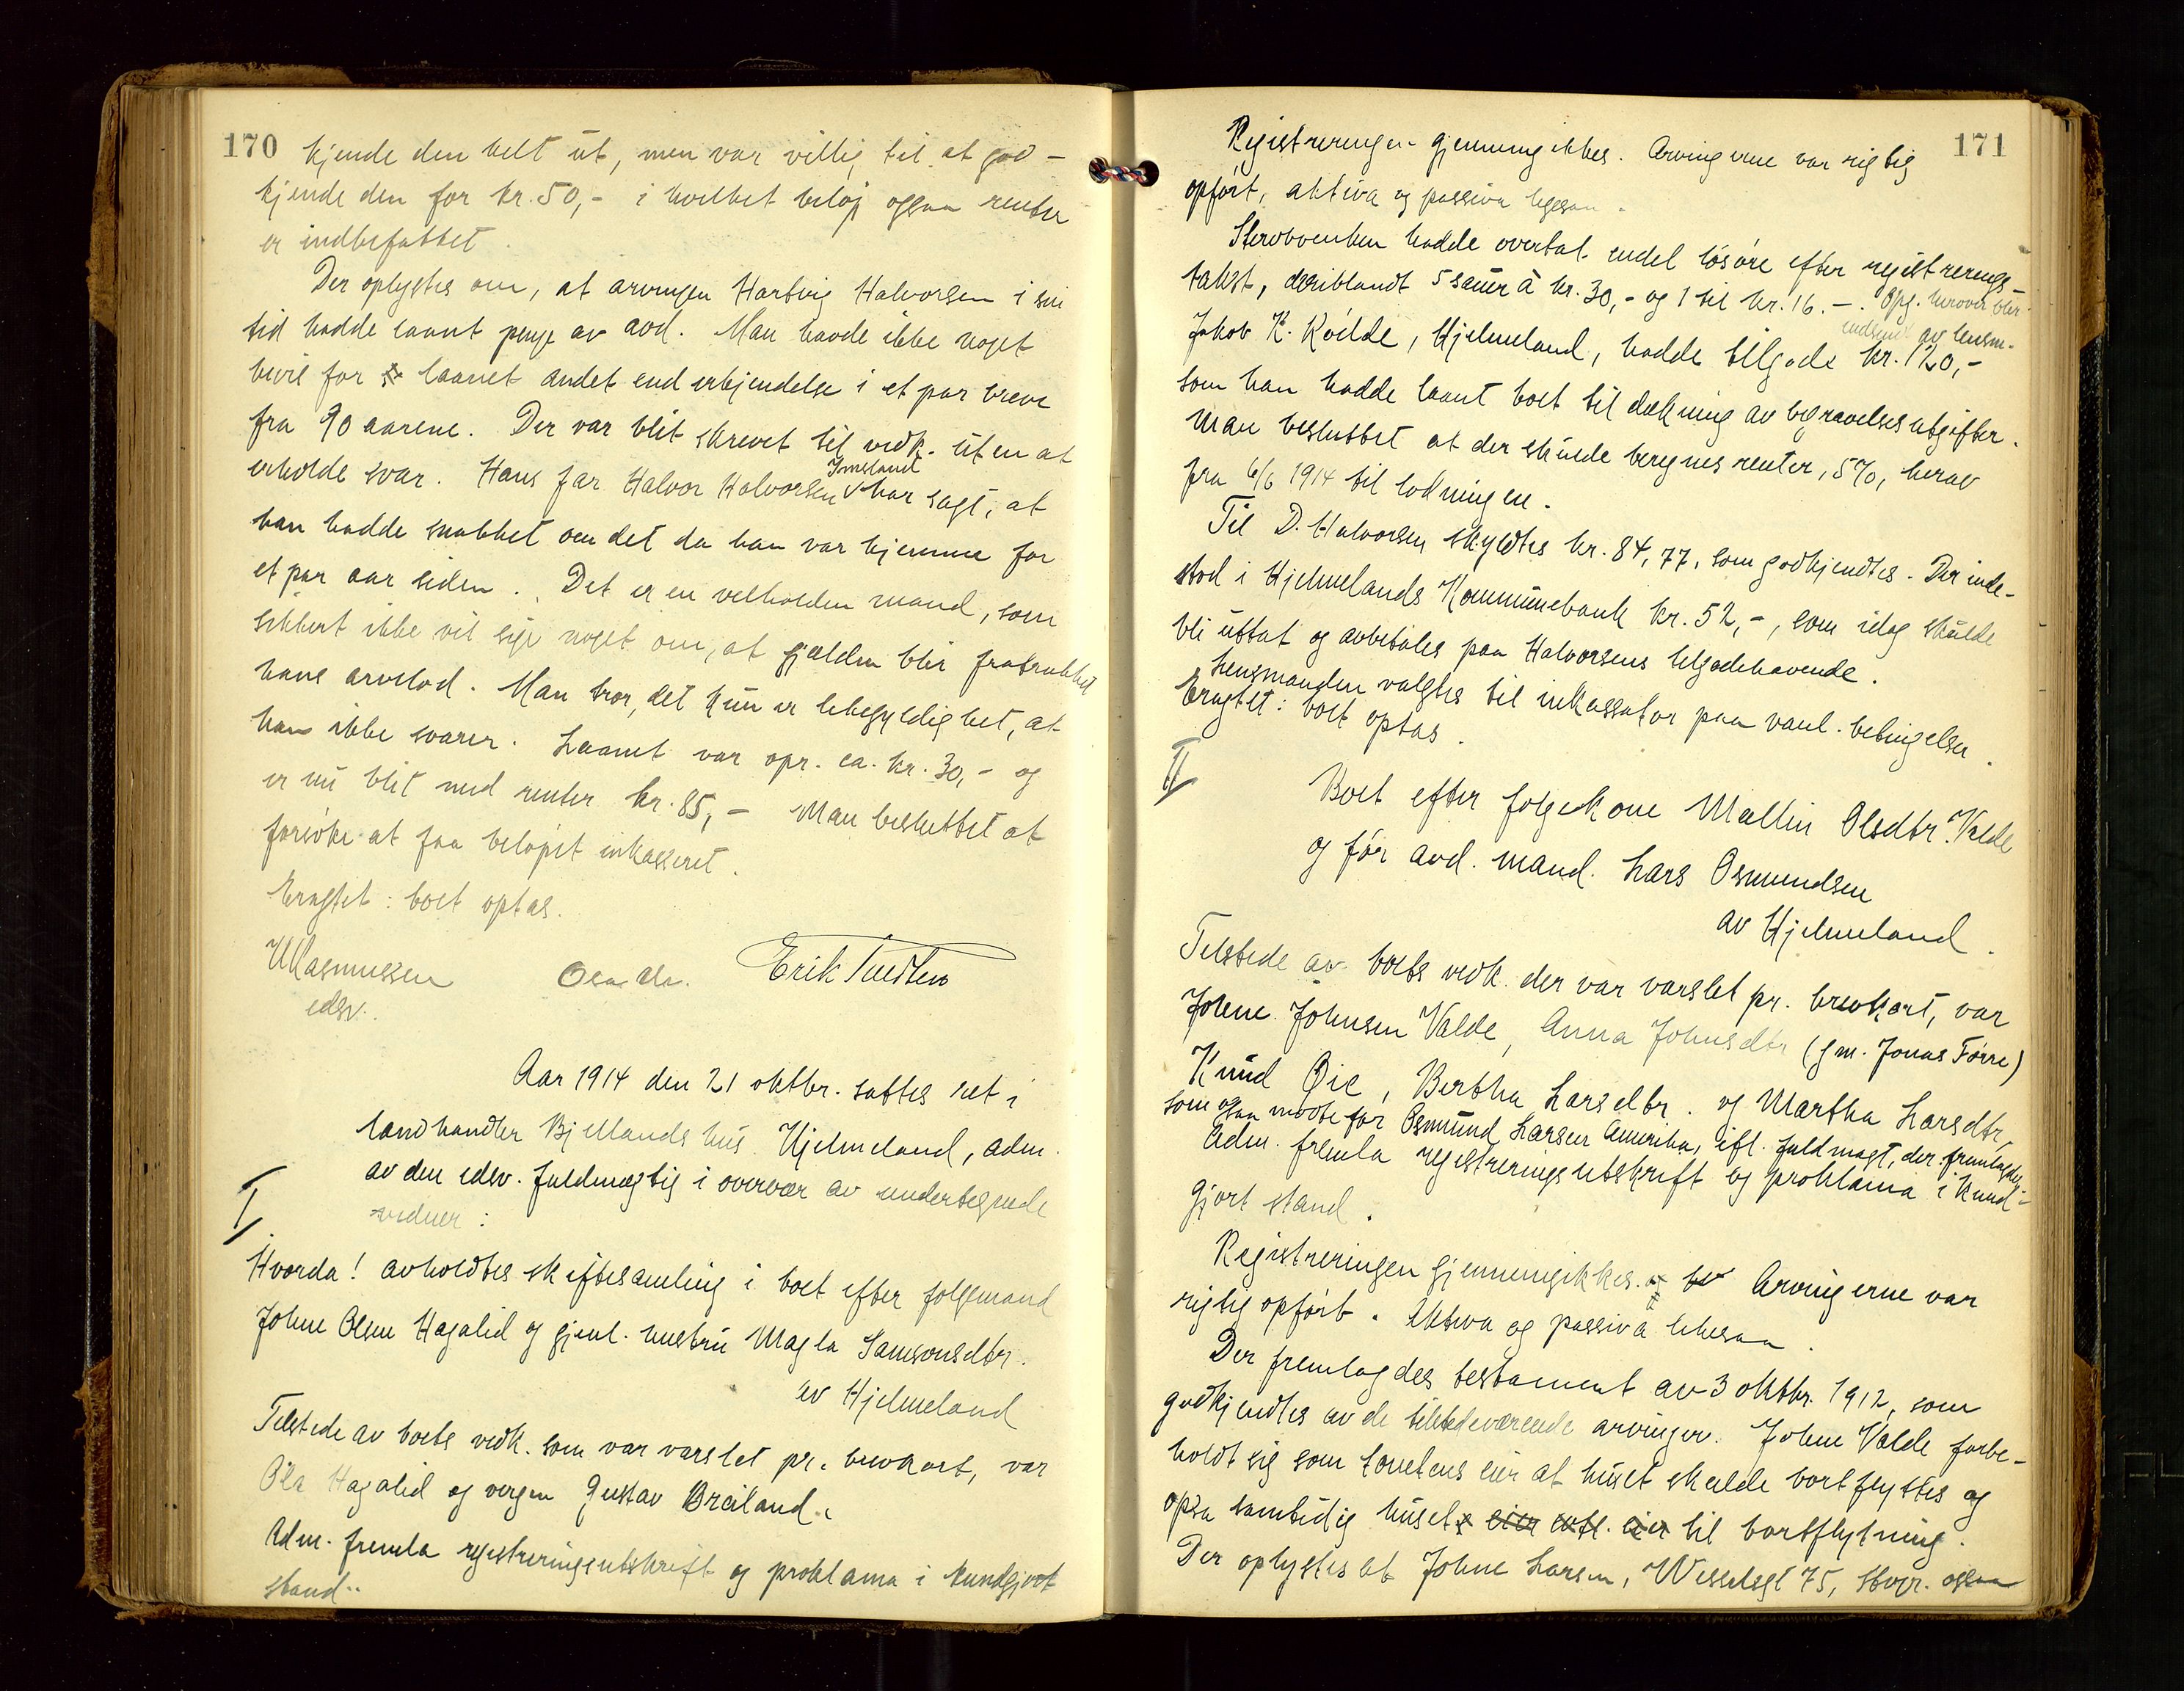 170
kjende den helt ut, men var villig til at god-
kjende den for kr. 50,- i hvilket beløp ogsaa renter
er indbefattet.
Der oplystes om, at arvingen Hartvig Halvorsen i sin
tid hadde laant penge av avd. Man havde ikke noget
bevis for laanet andet end erkjendelse i et par breve
fra 90 aarene. Der var blit skrevet til vedk. uten at
erholde svar. Hans far Halvor Halvorsen Imsland har sagt, at
han hadde snakket om det da han var hjemme for
et par aar siden. Det er en velholden mand, som
sikkert ikke vil sige noget om, at gjælden blir fratrukket
hans arvelod. Man tror, det kun er likegyldighet, at
han ikke svarer. Laanet var opr. ca. kr. 30,- og
er nu blit med renter kr. 85,- Man besluttet at
forsøke at faa beløpet inkasseret.
Eragtet: boet optas.
Rasmussen Erik Tuedten
edsv.
Aar 1914 den 21 oktbr. sattes ret i
landhandler Bjellands hus Hjelmeland, adm.
av den edsv. fuldmægtig i overvær av undertegnede
vidner:
I
Hvorda! avholdtes skiftesamling i boet efter følgemand
Johne Olsen Hagalid og gjenl. hustru Magla Samsonsdtr.
av Hjelmeland
Tilstede av boets vedk. som var varslet pr. brevkort, var
Ola Hagalid og vergen Gustav Breiland.
Adm. fremla registreringsutskrift og proklama i kundgjort
stand.
171
Registreringen gjennemgikkes. Arvingerne var rigtig
opført, aktiva og passiva likesaa.
Sterbbenken hadde overtat endel løsøre efter registrerings-
takst, deriblandt 5 sauer à kr. 30,- og 1 til kr. 16.-. Opg. herover blir
indsendt av lensm.
Jakob K. Kvilde, Hjelmeland, hadde tilgode kr. 120,-
som han hadde laant boet til dækning av begravelsesutgifter.
Man besluttet at der skulde beregnes renter, 5%, herav
fra 6/6 1914 til lodningen.
Til D. Halvorsen skyldtes kr. 84,77, som godkjendtes. Der inde-
stod i Hjelmelands Kommunebank kr. 52,-, som idag skulde
bli uttat og avbetales paa Halvorsens tilgodehavende.
Lensmanden valgtes til inkassator paa vanl. betingelser.
Eragtet: boet optas.
II
Boet efter følgekone Mallin Olsdtr. Valde
og før avd. mand. Lars Osmundsen
av Hjelmeland.
Tilstede av boets vedk. der var varslet pr. brevkort, var
Johne Johnsen Valde, Anna Johnsdtr (gm. Jonas Førre)
Knud Øie, Bertha Larsdtr. og Martha Larsdtr
som ogsaa møtte for Osmund Larsen Amerika, ifl. fuldmagt, der fremlagdes.
Adm. fremla registreringsutskrift og proklama i kund-
gjort stand.
Registreringen gjennemgikkes. Arvingerne var
rigtig opført. Aktiva og passiva likesaa.
Der fremlagdes testament av 3 oktbr. 1912, som
godkjendtes av de tilstedeværende arvinger. Johne Valde forbe-
holdt sig som tomtens eier at huset skulde bortflyttes og
opsa samtidig huset eier til bortflytning.
Der oplystes at Johne Larsen, Wesselsgt 75, Stvgr. ogsaa